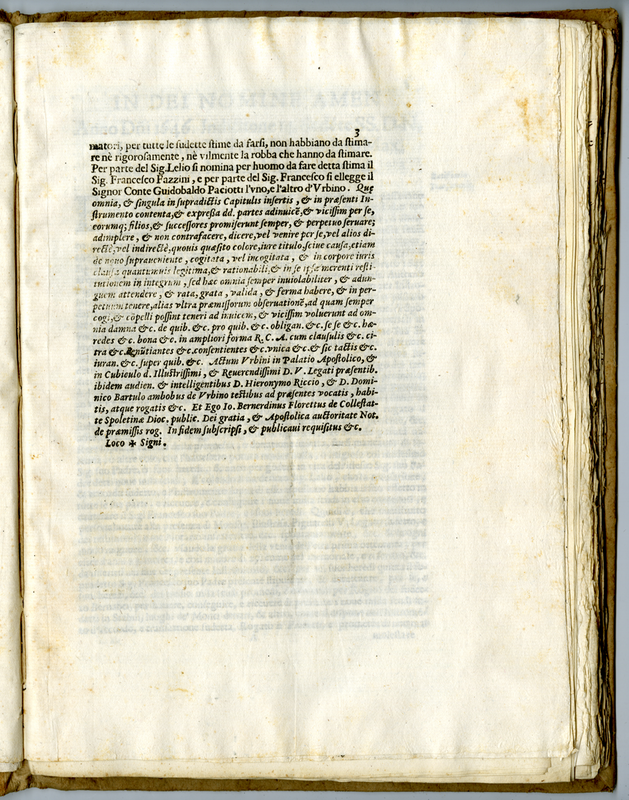 3
matori, per tutte le sudette stime da farsi, non habbiano da stima-
re nè rigorosamente, nè vilmente la robba che hanno da stimare.
Per parte del Sig. Lelio si nomina per huomo da fare detta stima il
Sig. Francesco Pazzini, e per parte del Sig. Francesco si ellegge il
Signor Conte Guidobaldo Paciotti l'vno, e l'altro d'Vrbino. Quę
omnia, & singula in supradictis Capitulis insertis, & in præsenti In-
strumento contenta, & expressa dd. partes adinuicẽ, & vicissim per se,
eorumq; filios, & successores promiserunt semper, & perpetuo seruare;
adimplere, & non contrafacere, dicere, vel venire per se, vel alios di-
rectè, vel indirectè, quouis quæsito colore, iure titulo, seiue causa, etiam
de nouo superueniente, cogitata, vel incogitata, & in corpore iuris
clausa quantumuis legitima, & rationabili, & in se ipsa merenti resti-
tutionem in integrum, sed hæc omnia semper inuiolabiliter, & adun-
guem attendere, & rata, grata, valida, & ferma habere, & in per-
petuum tenere, alias vltra præmissorum obseruationẽ, ad quam semper
cogi, & cõpelli possint teneri ad inuicem, & vicissim voluerunt ad om-
nia damna &c. de quib. &c. pro quib. &c. obligan. &c. se se &c. hæ-
redes &c. bona &c. in ampliori forma R. C. A. cum clausulis &c. ci-
tra &c. Renũtiantes &c. consentientes &c. vnica &c. & sic tactis &c.
iuran. &c. super quib. &c. Actum Vrbini in Palatio Apostolico, &
in Cubiculo d. Illustrissimi, & Reuerendissimi D. V. Legati præsentib.
ibidem audien. & intelligentibus D. Hieronymo Riccio, & D. Domi-
nico Bartulo ambobus de Vrbino testibus ad præsentes vocatis, habi-
tis, atque rogatis &c. Et Ego Io. Bernerdinus Florettus de Collestat-
te Spoletinæ Dioc. public. Dei gratia, & Apostolica auctoritate Not.
de præmissis rog. In fidem subscripsi, & publicaui requisitus &c.
Loco ✠ Signi.